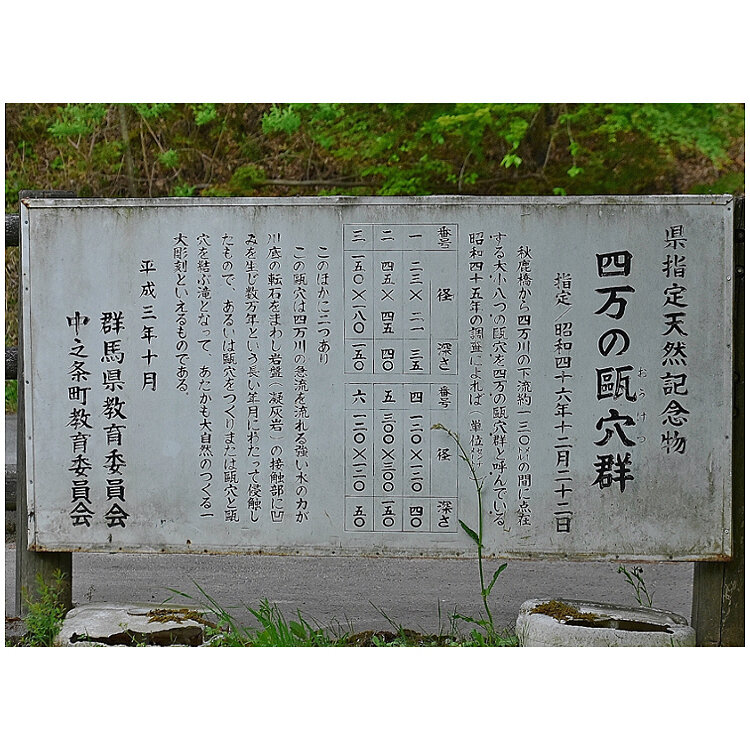 県指定天然記念物
四万の甌穴群
おうけつ
指定／昭和四十六年十二月二十二日
秋鹿橋から四万川の下流約一三〇㍍の間に点在
する大小八つの甌穴を四万の甌穴群と呼んでいる。
昭和四十五年の調査によれば（単位
番号 径 深さ
一 二三×二一 三五
二 四五×四五 四〇
三 一五〇×一八〇 一五〇
番号 径 深さ
四 一二〇×一二〇 四〇
五 三〇〇×三〇〇 一五〇
六 一三〇×一二〇 五〇
このほかに二つあり
この甌穴は四万川の急流を流れる強い水の力が
川底の転石をまわし岩盤（凝灰岩）の接触部に凹
みを生じ数万年という長い年月にわたって侵触し
たもので、あるいは甌穴をつくりまたは甌穴と甌
穴を結ぶ滝となって、あたかも大自然のつくる一
大彫刻といえるものである。
平成三年十月
群馬県教育委員会
中之条町教育委員会